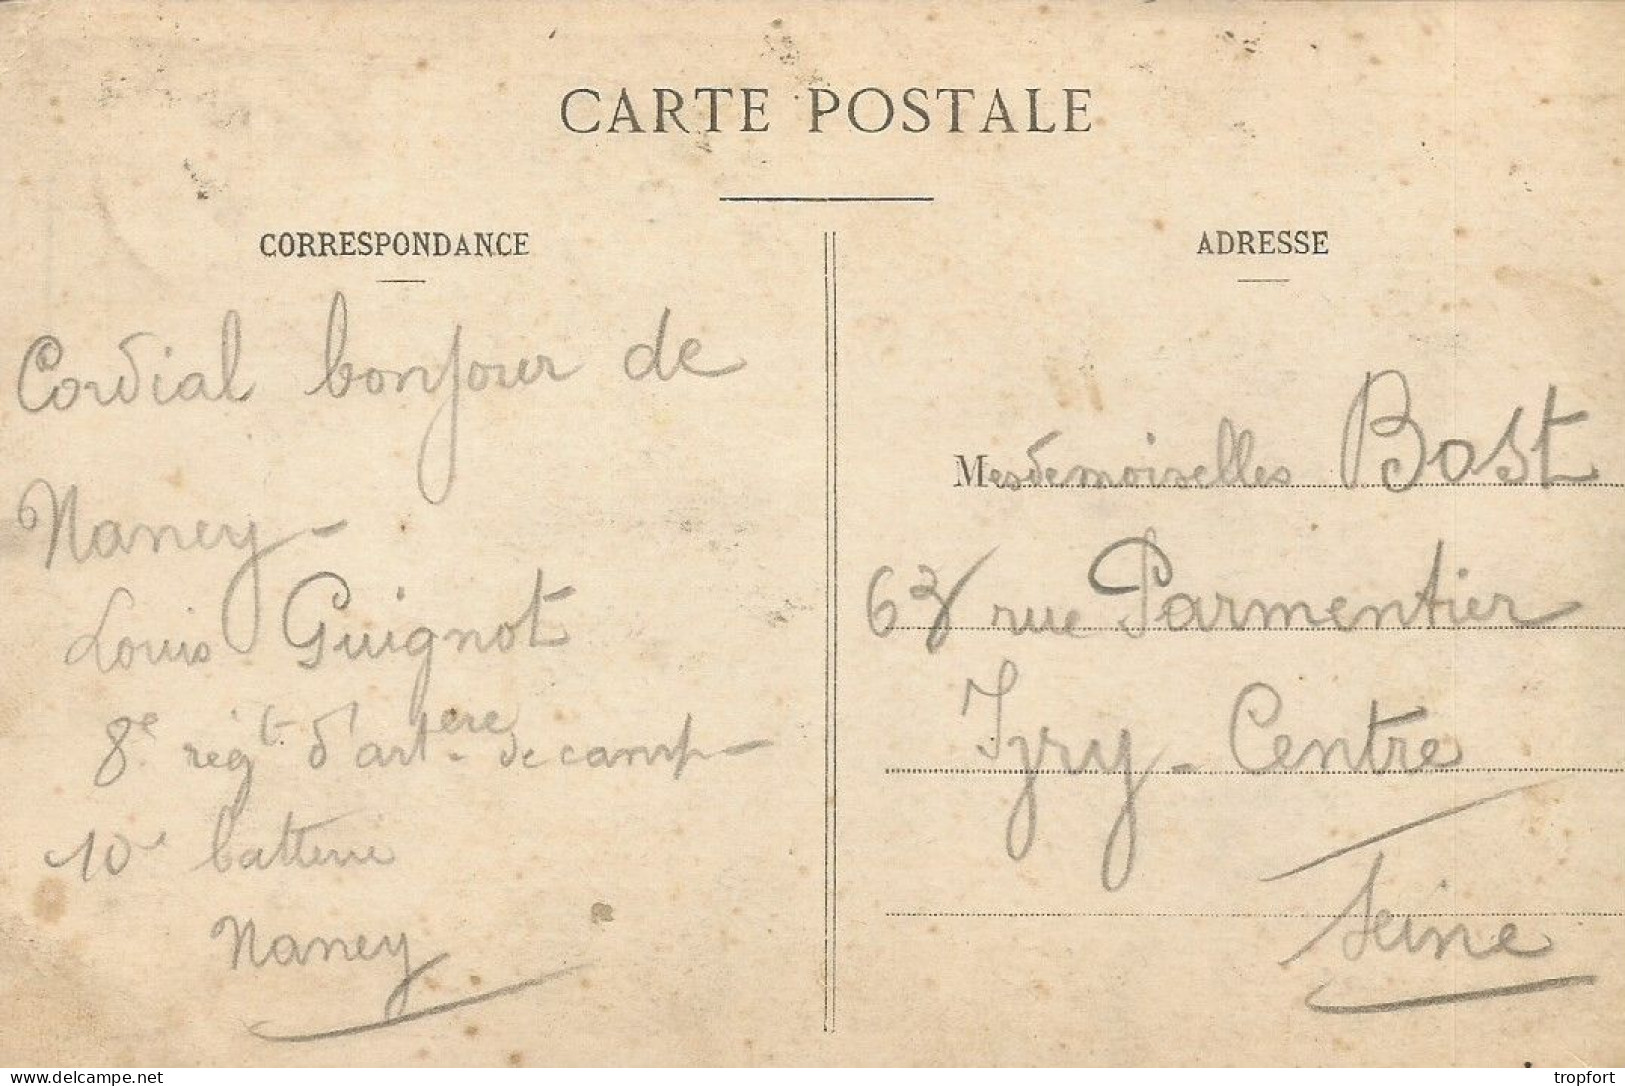 CARTE POSTALE
CORRESPONDANCE
Cordial bonjour de
Nancy -
Louis Guignot
8e régt. d'art.ere de camp -
10e batterie
Nancy
ADRESSE
Mesdemoiselles Bost
63 rue Parmentier
Ivry - Centre
Seine
delcampe.net
tropfort